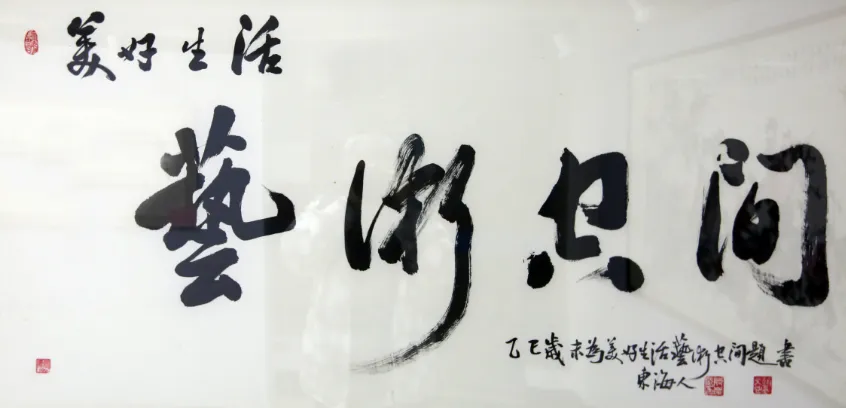 美好生活
藝術空间
乙巳歲末為美好生活藝術空间題書
東海人